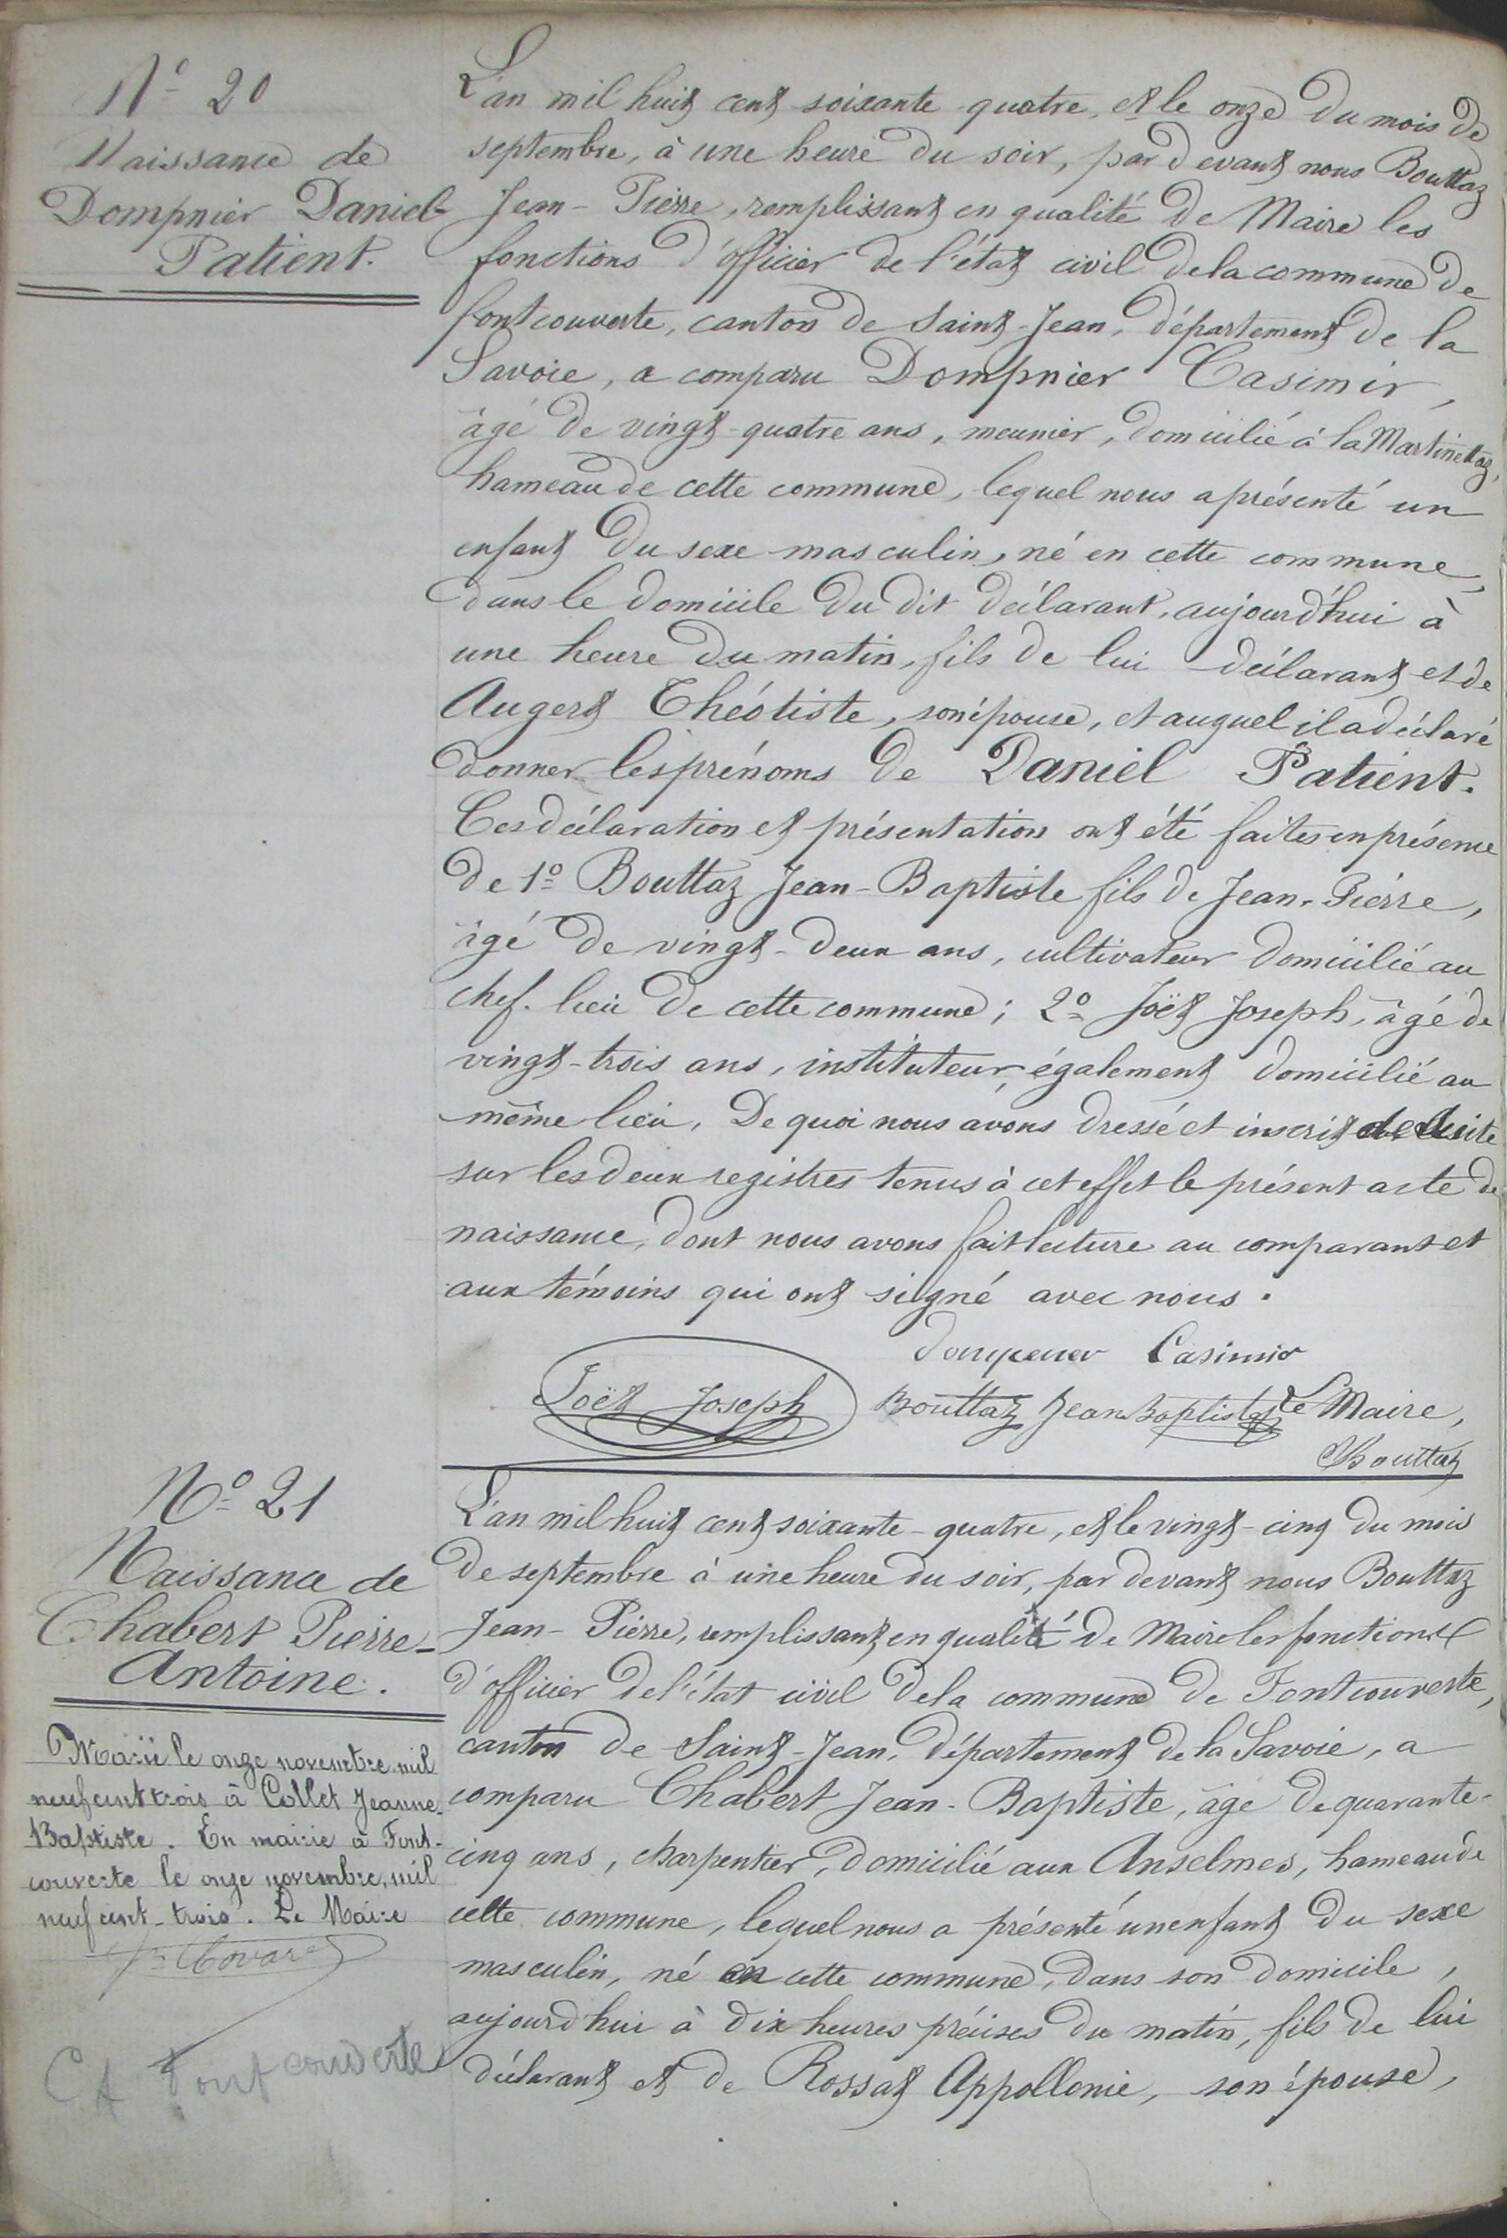 N° 20
Naissance de
Dompnier Daniel
Patient.
L'an mil huit cent soixante quatre, et le onze du mois de
septembre, à une heure du soir, par devant nous Bouttaz
Jean-Pierre, remplissant en qualité de Maire les
fonctions d'officier de l'état civil de la commune de
fontcouverte, canton de Saint-Jean, département de la
Savoie, a comparu Dompnier Casimir,
âgé de vingt-quatre ans, meunier, domicilié à la Martinettaz,
hameau de cette commune, lequel nous a présenté un
enfant du sexe masculin, né en cette commune,
dans le domicile du dit déclarant, aujourd'hui à
une heure du matin, fils de lui déclarant et de
Augert Théotiste, son épouse, et auquel il a déclaré
donner les prénoms de Daniel Patient.
Ces déclaration et présentation ont été faites en présence
de 1° Bouttaz Jean-Baptiste fils de Jean-Pierre,
âgé de vingt-deux ans, cultivateur domicilié au
chef-lieu de cette commune; 2° Joët Joseph, âgé de
vingt-trois ans, instituteur, également domicilié au
même lieu. De quoi nous avons dressé et inscrit de suite
sur les deux registres tenus à cet effet le présent acte de
naissance, dont nous avons fait lecture au comparant et
aux témoins qui ont signé avec nous.
Dompnier Casimir
Joët Joseph Bouttaz Jean Baptiste Le Maire,
Bouttaz
N° 21
Naissance de
Chabert Pierre-
Antoine.
Marié le onze novembre mil
neuf cent trois à Collet Jeanne-
Baptiste. En mairie à Font-
couverte le onze novembre mil
neuf cent-trois. Le Maire
Covarel
CA Fontcouverte
L'an mil huit cent soixante-quatre, et le vingt-cinq du mois
de septembre à une heure du soir, par devant nous Bouttaz
Jean-Pierre, remplissant en qualité de Maire les fonctions
d'officier de l'état civil de la commune de Fontcouverte,
canton de Saint-Jean, département de la Savoie, a
comparu Chabert Jean-Baptiste, âgé de quarante-
cinq ans, charpentier, domicilié aux Anselmes, hameau de
cette commune, lequel nous a présenté un enfant du sexe
masculin, né en cette commune, dans son domicile,
aujourd'hui à dix heures précises du matin, fils de lui
déclarant et de Rossat Appollonie, son épouse,